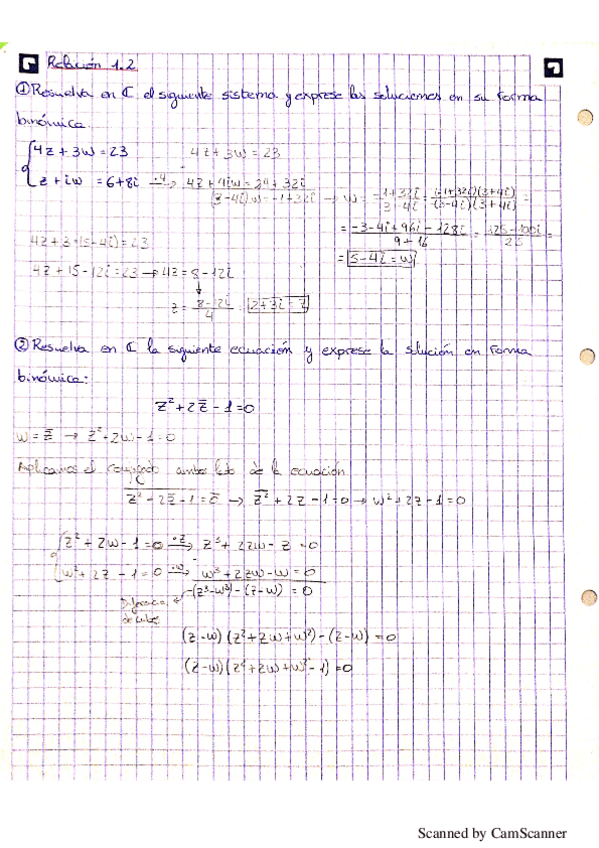 Relación 1.2
① Resuelva en ℂ el siguiente sistema y exprese las soluciones en su forma
binómica.
{4z + 3w = 23   4z + 3w = 23
{z + iw = 6+8i  ·4→  4z + 4iw = 24 + 32i
(3-4i)w = -1+32i → w = (-1+32i)/(3-4i) = (-1+32i)(3+4i)/(3-4i)(3+4i) =
= (-3-4i+96i-128i)/(9+16) = (125-100i)/25 =
4z + 3·(5-4i) = 23
= 5-4i = w
4z + 15-12i = 23 → 4z = 8-12i
z = (8-12i)/4   2+3i = z
② Resuelva en ℂ la siguiente ecuación y exprese la solución en forma
binómica:
z² + 2z̄ - 1 = 0
w = z̄ → z² + 2w - 1 = 0
Aplicamos el conjugado ambos lado de la ecuación
z² - 2z̄ - 1 = 0̄ → z̄² + 2z - 1 = 0 → w² + 2z - 1 = 0
{z² + 2w - 1 = 0  ·z→  z³ + 2zw - z = 0
{w² + 2z - 1 = 0  ·w→  w³ + 2zw - w = 0
-(z³-w³) - (z-w) = 0
Diferencia
de cubos
(z-w)(z²+zw+w²)-(z-w) = 0
(z-w)(z²+zw+w²-1) = 0
Scanned by CamScanner